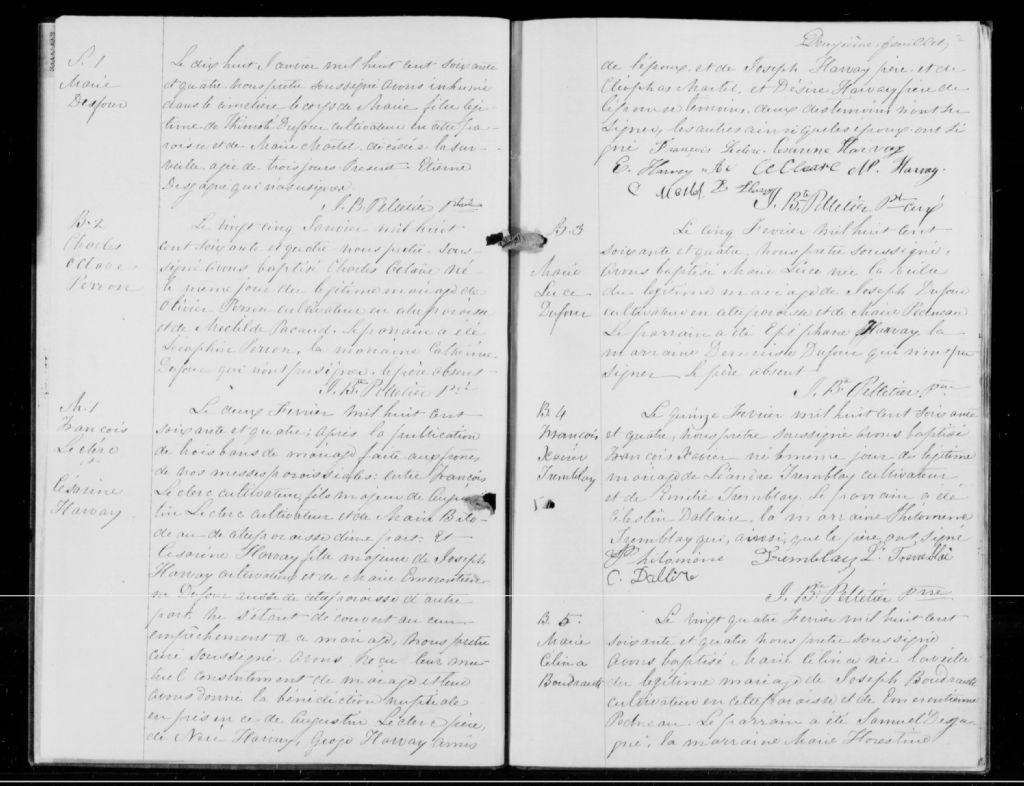 S. 1
Marie
Dufour
Le dix huit Janvier mil huit cent soixante
et quatre nous pretre soussigné avons inhumé
dans le cimetière le corps de Marie fille légi-
time de Thimoté Dufour cultivateur en cette pa-
roisse et de Marie Martel décédée la sur-
veille agée de trois jours Present Etienne
qui na su signer
J. B. Pelletier Ptre
B. 2
Charles
Octave
Perron
Le vingt cinq Janvier mil huit
cent soixante et quatre nous pretre sous-
signé avons baptisé Charles Octave né
le meme jour du légitime mariage de
Olivier Perron cultivateur en cette paroisse
et de Mathilde Pacaud. Le parrain a été
Séraphin Perron, la marraine Catherine
Dufour qui n'ont pu signer. le père absent
J. Bte Pelletier Ptre
M. 1
Francois
Leclerc
et
Césarine
Harvay
Le deux Fevrier mil huit cent
soixante et quatre; après la publication
de trois bans de mariage faite aux prones
de nos messes paroissiales: entre François
Leclerc cultivateur, fils majeur de Augus-
tin Leclerc cultivateur et de Marie Bilo-
deau de cette paroisse d'une part: Et
Césarine Harvay fille majeure de Joseph
Harvay cultivateur et de Marie Emerentien-
ne Dufour aussi de cette paroisse d'autre
part. Ne s'étant découvert aucun
empêchement à ce mariage, Nous pretre
curé soussigné avons reçu leur mu-
tuel consentement de mariage et leur
avons donné la bénédiction nuptiale
en présence de Augustin Leclerc père,
de Harvay, Harvay amis
Douzième feuillet
de l'époux, et de Joseph Harvay père et de
Cléophas Martel, et Désiré Harvay frère de
l'épouse témoins, deux des témoins n'ont su
signer, les autres ainsi que les époux ont si-
gné François Leclerc Césarine Harvay
E. Harvey Harvay
C Martel D Harvay
J. Bte Pelletier Pt curé
B. 3
Marie
Luce
Dufour
Le cinq Fevrier mil huit cent
soixante et quatre, Nous pretre soussigné,
avons baptisé Marie Luce née la veille
du légitime mariage de Joseph Dufour
cultivateur en cette paroisse et de Marie Pedneau
Le parrain a été Epiphane Harvay la
marraine Demerise Dufour qui n'ont pu
signer le père absent.
J. Bte Pelletier Ptre
B. 4
Francois
Xavier
Tremblay
Le quinze Fevrier mil huit cent soixante
et quatre, nous pretre soussigné avons baptisé
Francois Xavier né le meme jour du légitime
mariage de Tremblay cultivateur
et de Emelie Tremblay. Le parrain a été
Célestin Daltaire, la marraine Philomene
Tremblay qui, ainsi, que le père, ont signé
Philomène Tremblay
C. Dallère
J. Bte Pelletier Ptre
B. 5.
Marie
Célina
Boudreault
Le vingt quatre Fevrier mil huit cent
soixante et quatre nous pretre soussigné
avons baptisé Marie Célina née la veille
du légitime mariage de Joseph Boudreault
cultivateur en cette paroisse et de Emerentienne
Pedneau. Le parrain a été Samuel Desga-
gné, la marraine Marie Florestine